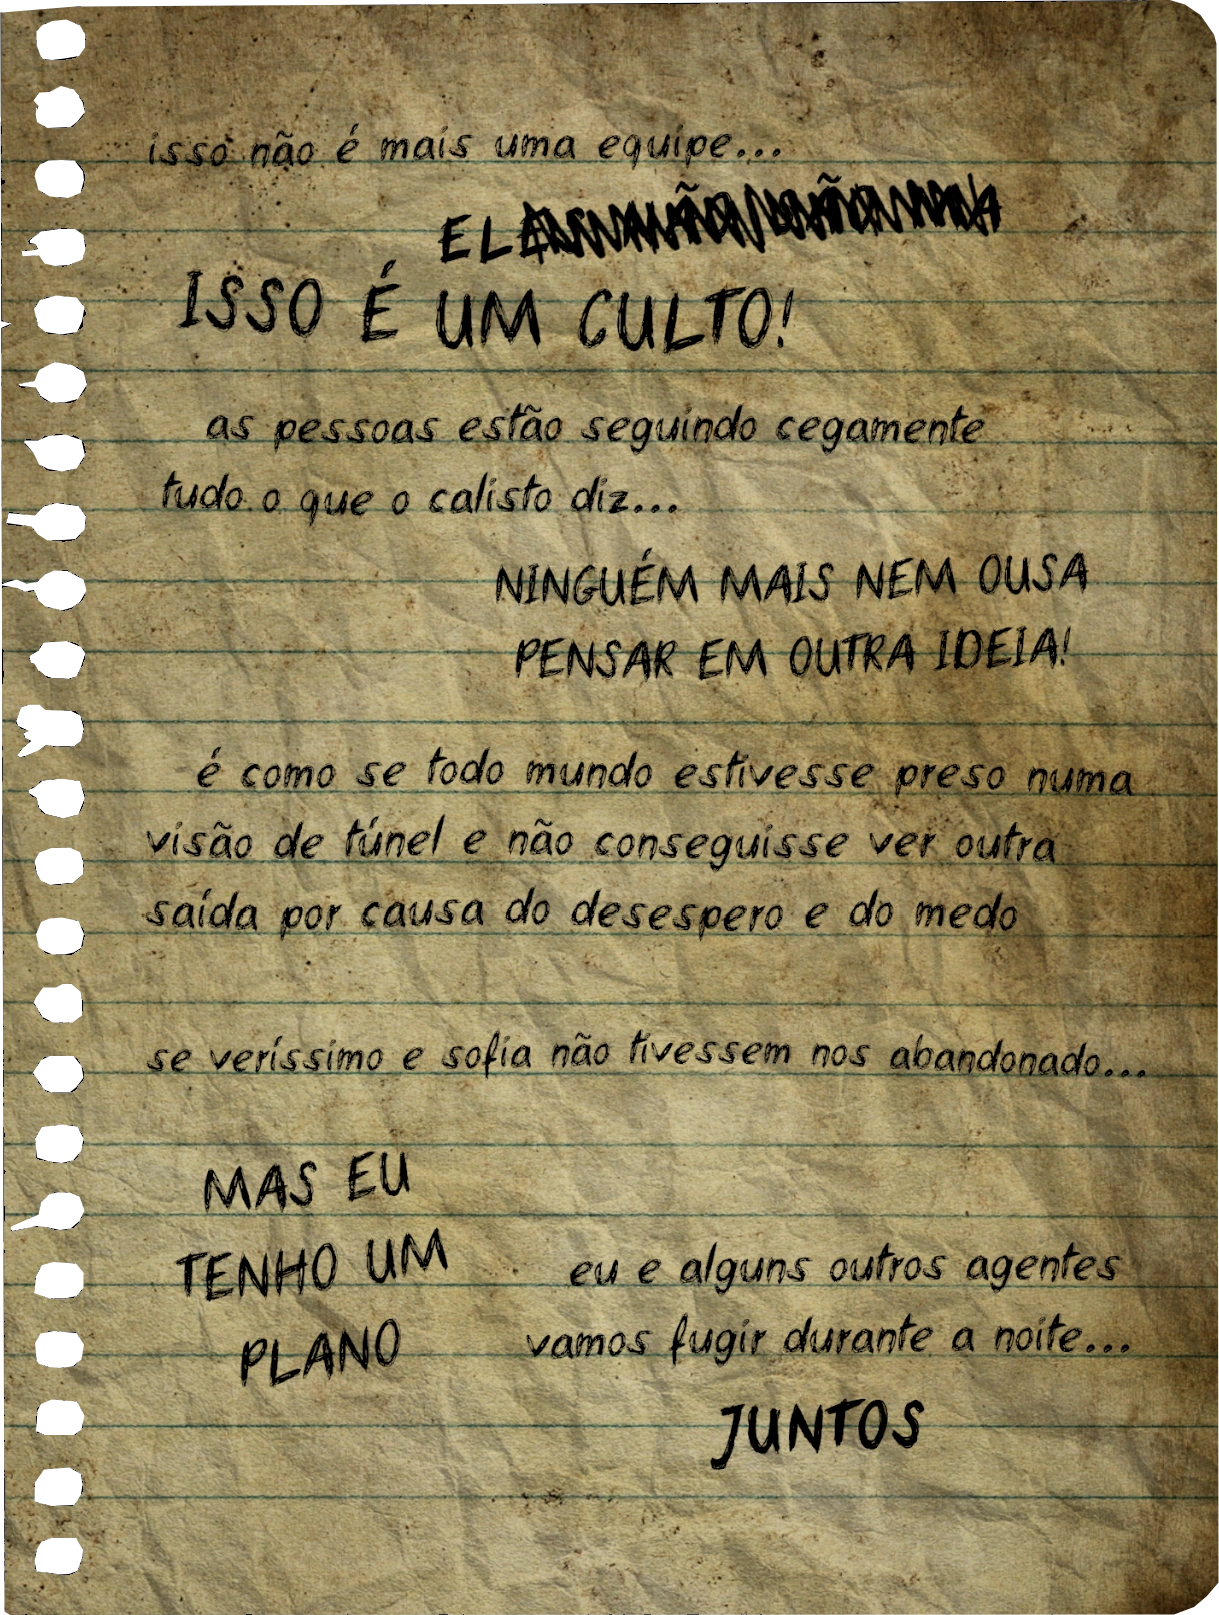 isso não é mais uma equipe...
ISSO É UM CULTO!
as pessoas estão seguindo cegamente
tudo o que o calisto diz...
NINGUÉM MAIS NEM OUSA
PENSAR EM OUTRA IDEIA!
é como se todo mundo estivesse preso numa
visão de túnel e não conseguisse ver outra
saída por causa do desespero e do medo
se veríssimo e sofia não tivessem nos abandonado...
MAS EU
TENHO UM
PLANO
eu e alguns outros agentes
vamos fugir durante a noite...
JUNTOS